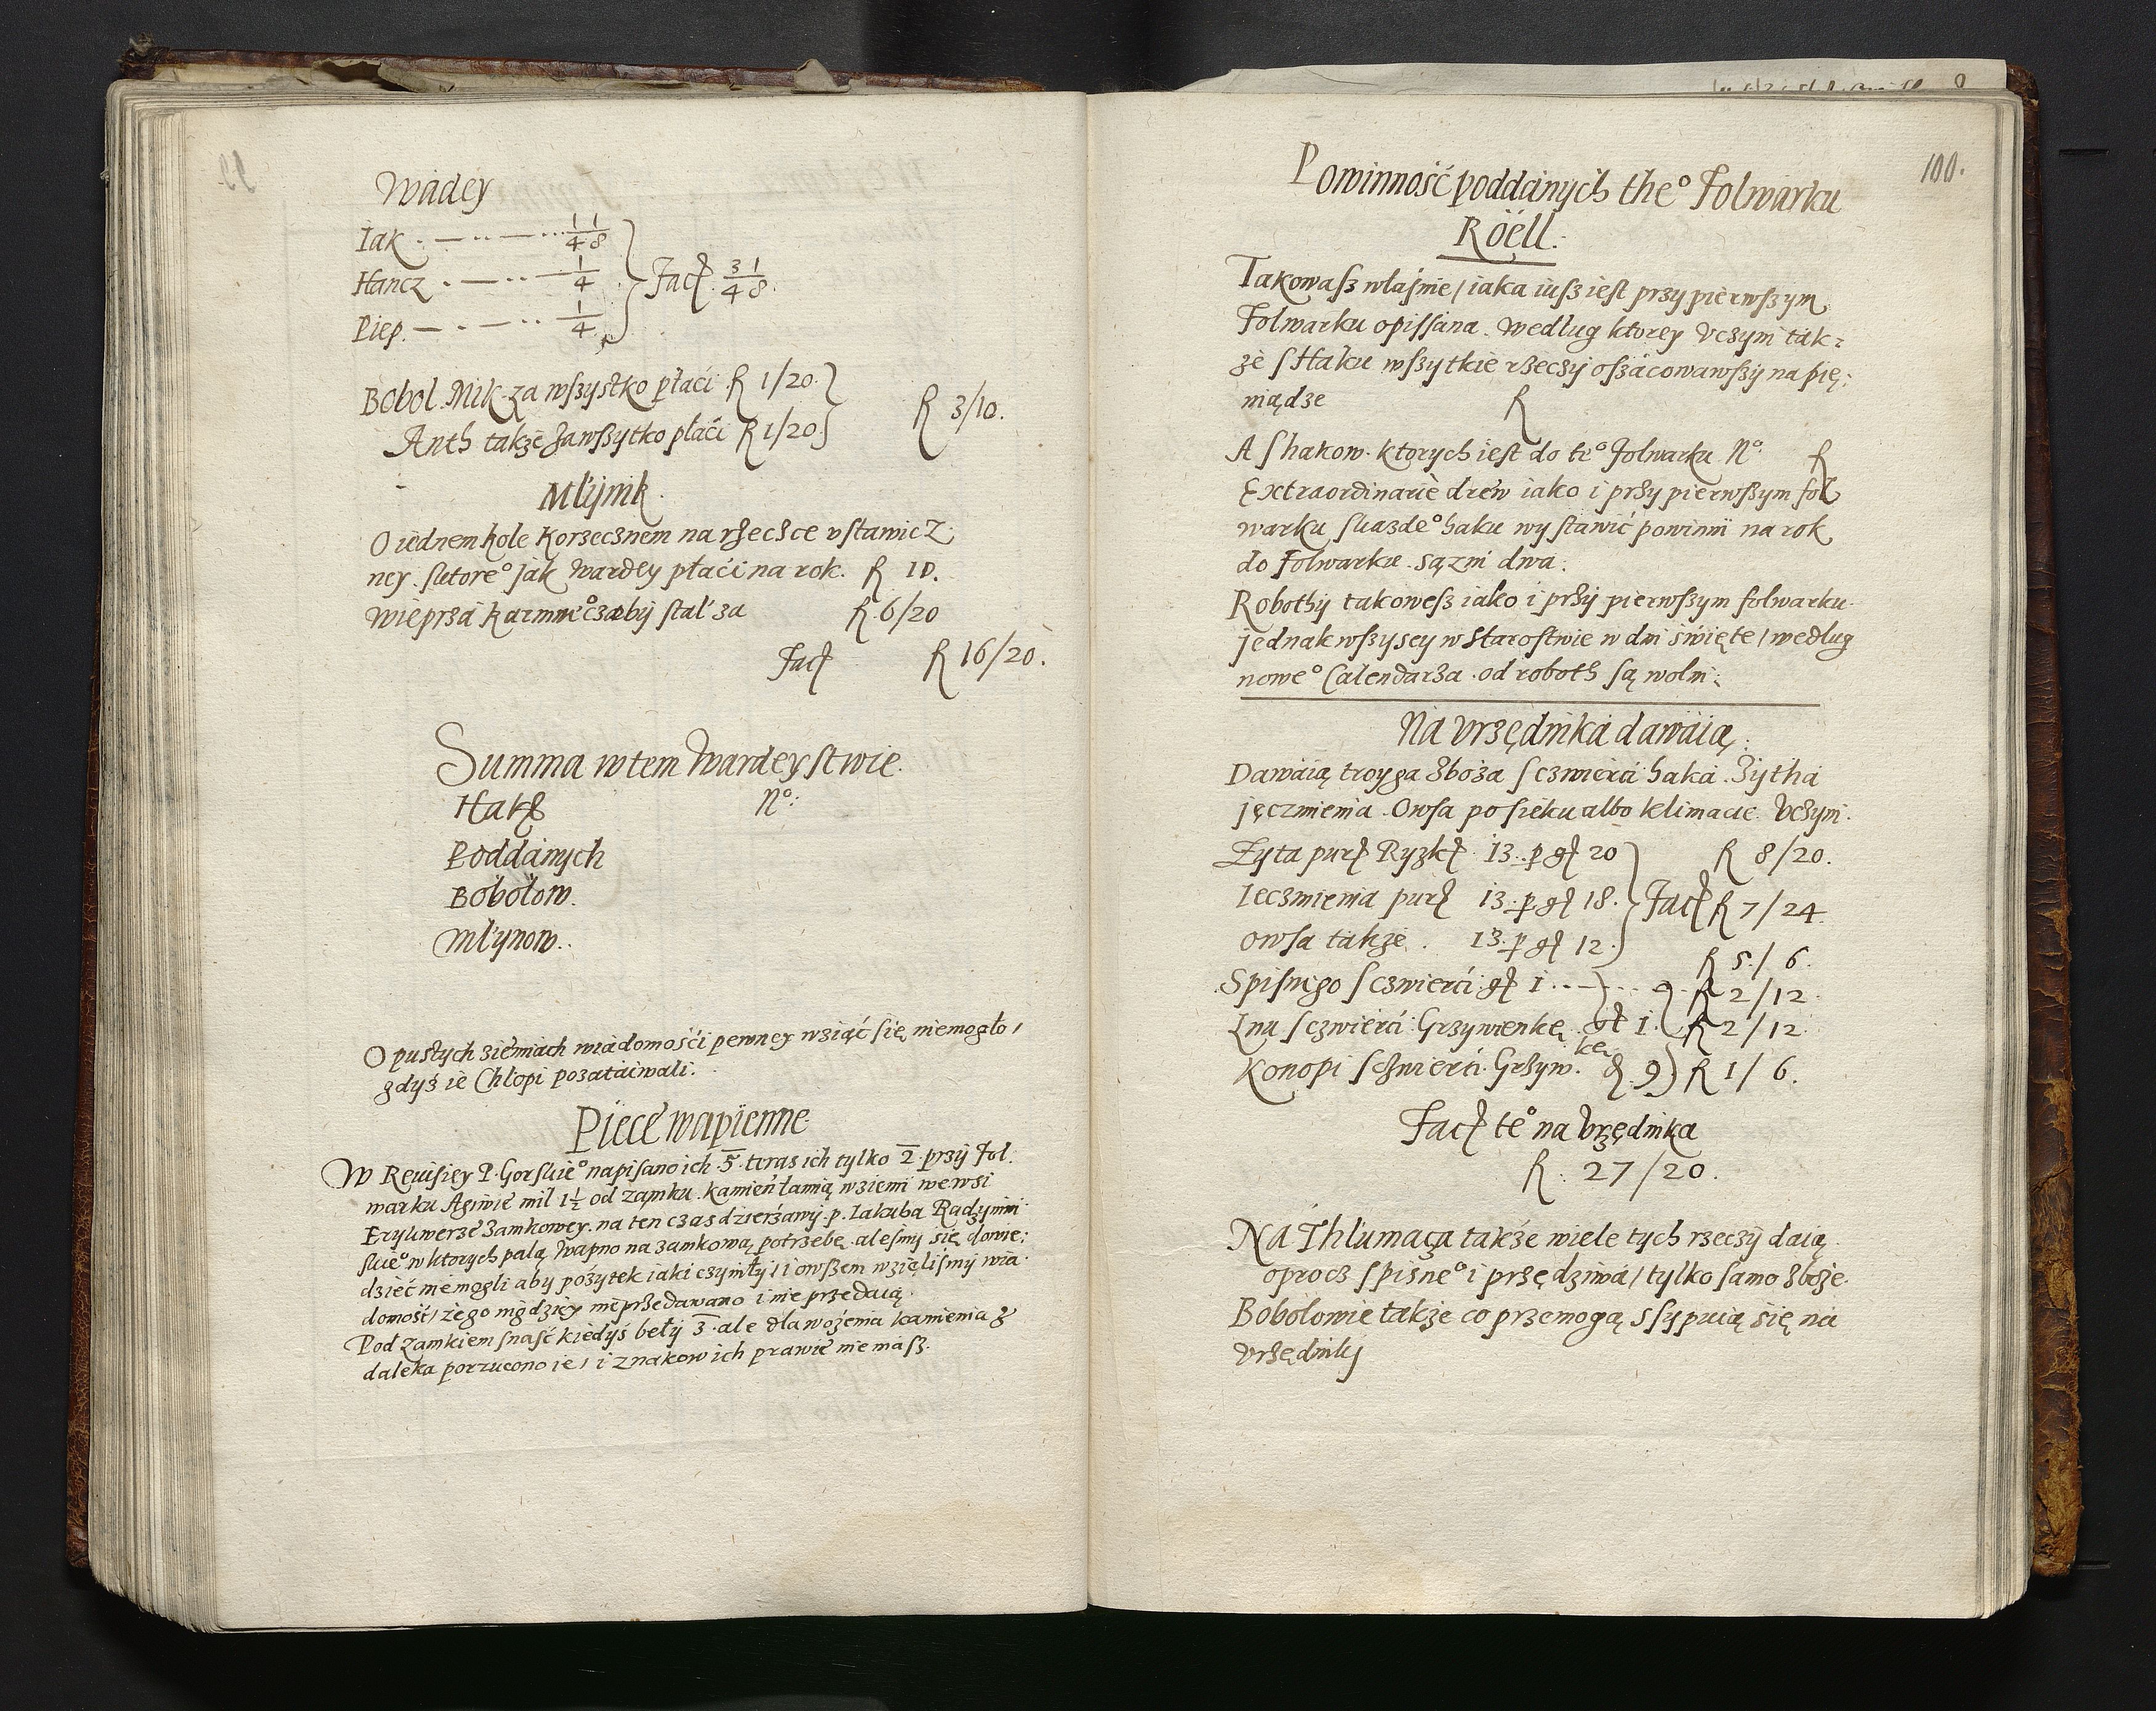 Wadey
Iak 1/4 1/8
Hancz 1/4
Piep. 1/4
Fac 3/4 1/8.
Bobol. Mik. za wszystko płaći R 1/20.
R 3/10.
Anth także zawszytko płaći R 1/20
Młynik.
O iednem kole Korzecznem na rzeczce vstawicz
ney. ktore° Jak Wardey płaći na rok. R 10.
Wieprza karmne° czoby stał za R 6/20
Fac R 16/20.
Summa w tem Wardeystwie.
Hak N°:
Poddanych
Bobołow.
Młynow.
O pustych ziemiach wiadomośći pewney wziąć się niemogło,
gdyż ie Chłopi pozataiwali.
Piece wapienne.
W Reuisiey P. Gorskie° napisano ich 5. teras ich tylko 2. przy Fol.
warku Aginie mil 1½ od zamku. kamień łamią wziemi we wsi
Erykwerze Zamkowey. na ten czas dzierżawy. p. Iakuba Radzimin
skie° w ktorych palą Wapno na zamkową potrzebę. alesmy się dowie:
dzieć nie mogli aby pożytek iaki czyniły, i owszem wzięlismy wia
domość, że go nigdziey nie przedawano i nie przedaią.
Pod zamkiem snaść kiedyś beły 3. ale dla wożenia kamienia z
daleka porzucono ie, i znakow ich prawie nie masz.
100.
Powinność poddanych the° Folwarku
Röell.
Takowasz własnie, iaka iusz iest przy pierwszym
Folwarku opissana. Według ktorey Vczyni tak:
że s Haku wszytkie rzeczy oszacowawszy na pię:
niądze R
A s hakow. ktorych iest do te° folwarku N°: R
Extraordinarie drew iako i przy pierwszym fol
warku skazde° haku wystawić powinni na rok
do Folwarku. sążni dwa.
Robothy takowesz iako i przy pierwszym folwarku.
jednak wszyscy w Starostwie w dni święte, według
nowe° Calendarza. od roboth są wolni.
Na vrzędnika dawaią.
Dawaią troyga zboża s czwierci haka. Żytha
jęczmienia. Owsa po sieku albo klimacie. Vczyni.
Żyta pur Ryzk 13. p g 20 R 8/20.
Ieczmienia pur 13. p g 18. Fac R 7/24
Owsa także. 13. p g 12. R 5/6.
Spisnego s czwierći g 1. R 2/12.
Lnu s czwierći Grzywienkę g 1. R 2/12
Konopi s czwierći. Grzyw.kę 9 R 1/6.
Fac te° na Vrzędnika
R: 27/20.
Na Thlumacza także wiele tych rzeczy daią.
oprocz spisne° i przędziwa, tylko samo zboże.
Bobolowie także co przemogą ssypuią się na
vrzędniky